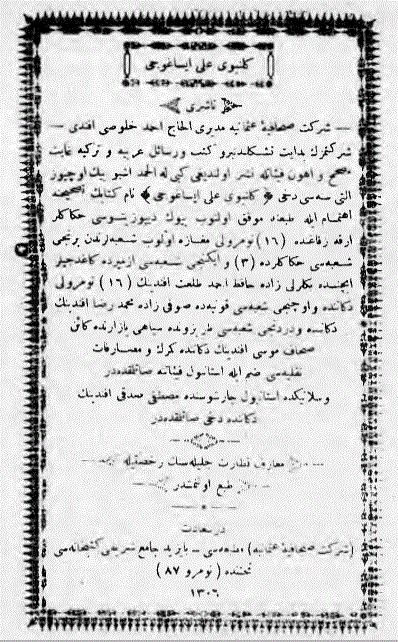 كلنبوی علی ایساغوجی
ناشری
شركت صحافیۀ عثمانیه مدیری الحاج احمد خلوصی افندی
شركتمزك بدایت تشكلندنبرو كتب ورسائل عربیه و تركیه غایت
مصحح و اهون فیئاتله نشر اولندیغی كبی له الحمد اشبو بیك اوچیوز
التی سنه‌سی دخی ﴿ كلنبوی علی ایساغوجی ﴾ نام كتابك تصحیحنه
اهتمام ایله طبعنه موفق اولنوب بیوك دیپوزیتوسی حكاكلر
ارقه زقاغنده (١٦) نومرولی مغازه اولوب شعبه‌لرندن برنجی
شعبه‌سی حكاكلرده (٣) و ایكنجی شعبه‌سی ازمیرده كاغدجیلر
ایچنده حافظ احمد طلعت افندینك (١٦) نومرولی
دكاننده واوچنجی شعبه‌سی قونیه‌ده صوفی زاده محمد رضا افندینك
دكاننده ودردنجی شعبه‌سی طربزونده سپاهی پازارنده كائن
صحاف موسی افندینك دكاننده كمرك و مصارفات
نقلیه‌سی ضم ایله استانبول فیئاتنه صاتلمقده‌در
وسلانیكده استانبول چارشوسنده مصطفی صدقی افندینك
دكاننده دخی صاتلمقده‌در
معارف نظارت جلیله‌سنك رخصتیله
طبع اولنمشدر
درسعادت
(شركت صحافیۀ عثمانیه) مطبعه‌سی — بایزید جامع شریفی كتبخانه‌سی
تحتنده (نومرو ٨٧)
١٣٠٦